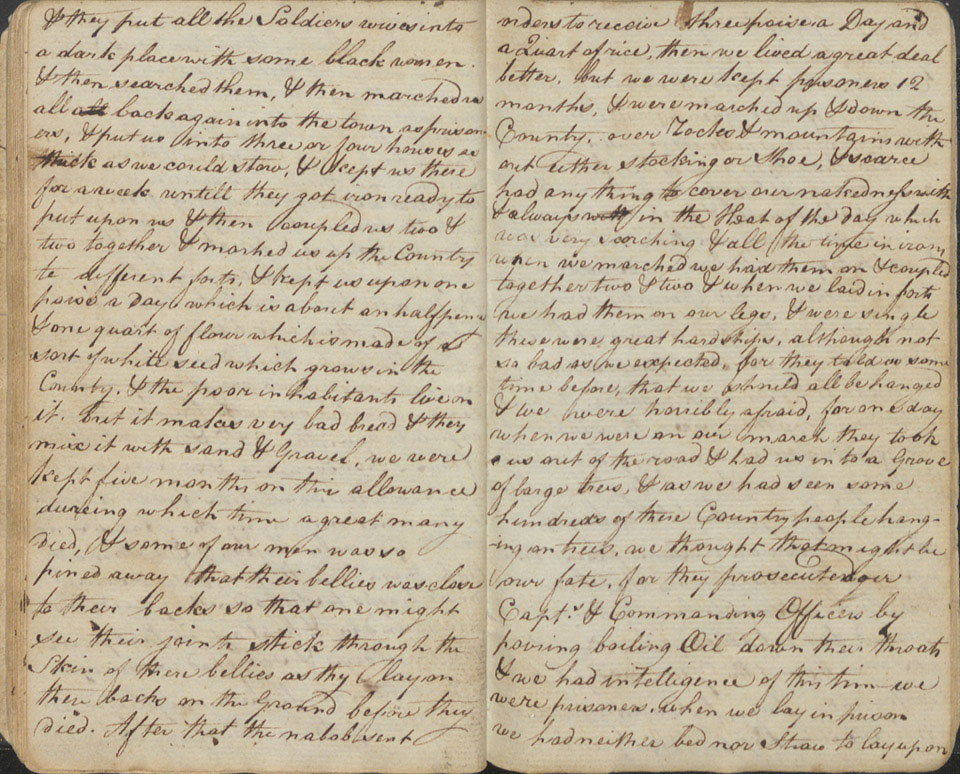 & they put all the Soldiers wives into
a dark place with some black women.
& then searched them, & then marched us
all all back again into the town as prison
ers, & put us into three or four houses as
thick as we could stow, & kept us there
for a week untill they got iron ready to
put upon us & then coupled us two &
two together & marched us up the Country
to different forts, & kept us upon one
paise a day which is about an halfpen
& one quart of flour which is made of a
sort of white seed which grows in the
County, & the poor inhabitants live on
it. but it makes very bad bread & they
mix it with sand & Gravel, we were
kept five months on this allowance
dureing which time a great many
died, & some of our men was so
pined away that their bellies was close
to their backs so that one might
see their joints stick through the
Skin of there bellies as thy lay on
there backs on the Ground before they
died. After that the nabob sent
orders to receive three paise a Day and
a Quart of rice, then we lived a great deal
better. but we were kept prisoners 12
months, & were marched up & down the
County, over Rocks & mountains with
out either stocking or Shoe, & scarce
had any thing to cover our nakedness with
& always with in the Heat of the day which
was very scorching & all the time in irons,
when we marched we had them on & coupled
together two & two & when we laid in forts
we had them on our legs, & were single
these were great hardships, although not
so bad as we expected, for they told us some
time before, that we should all be hanged
& we were horribly afraid, for one day
when we were on our march they took
us out of the road & had us in to a Grove
of large trees, & as we had seen some
hundreds of these Country people hang-
ing on trees, we thought that might be
our fate, for they prosecuted our
Capts. & Commanding Officers by
pouring boiling Oil down their throats
& we had intelligence of this time we
were prisoners. when we lay in prison
we had neither bed nor Straw to lay upon